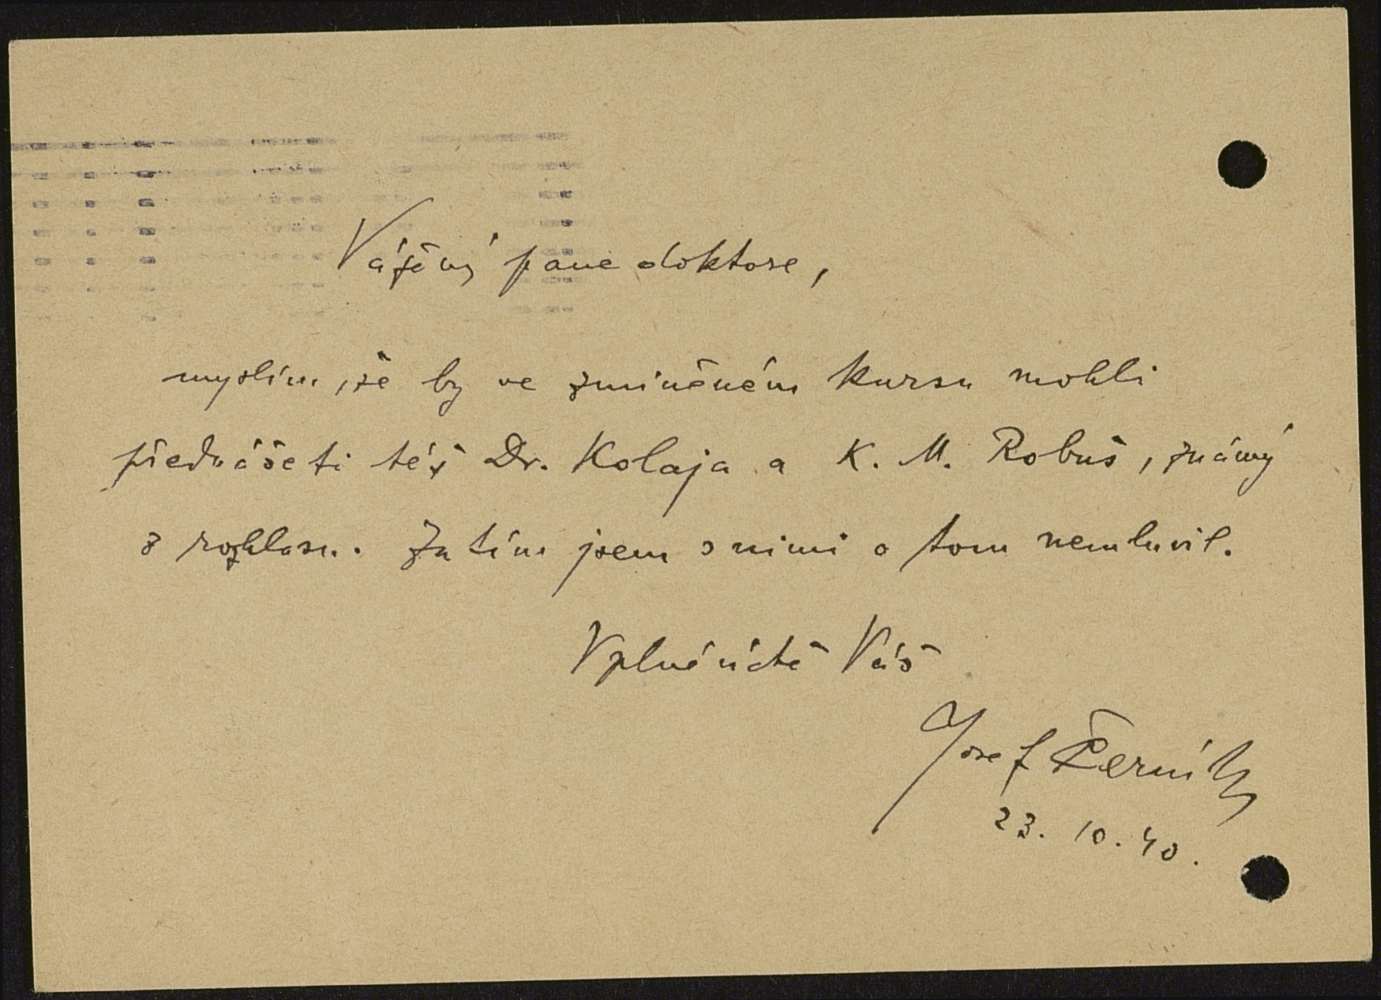 Vážený pane doktore,
myslím, že by ve zmíněném kursu mohli
přednášeti též Dr. Kolaja a K. M. Robuš, známý
z rozhlasu. Zatím jsem s nimi o tom nemluvil.
V plné úctě Váš
Josef Černík
23. 10. 40.